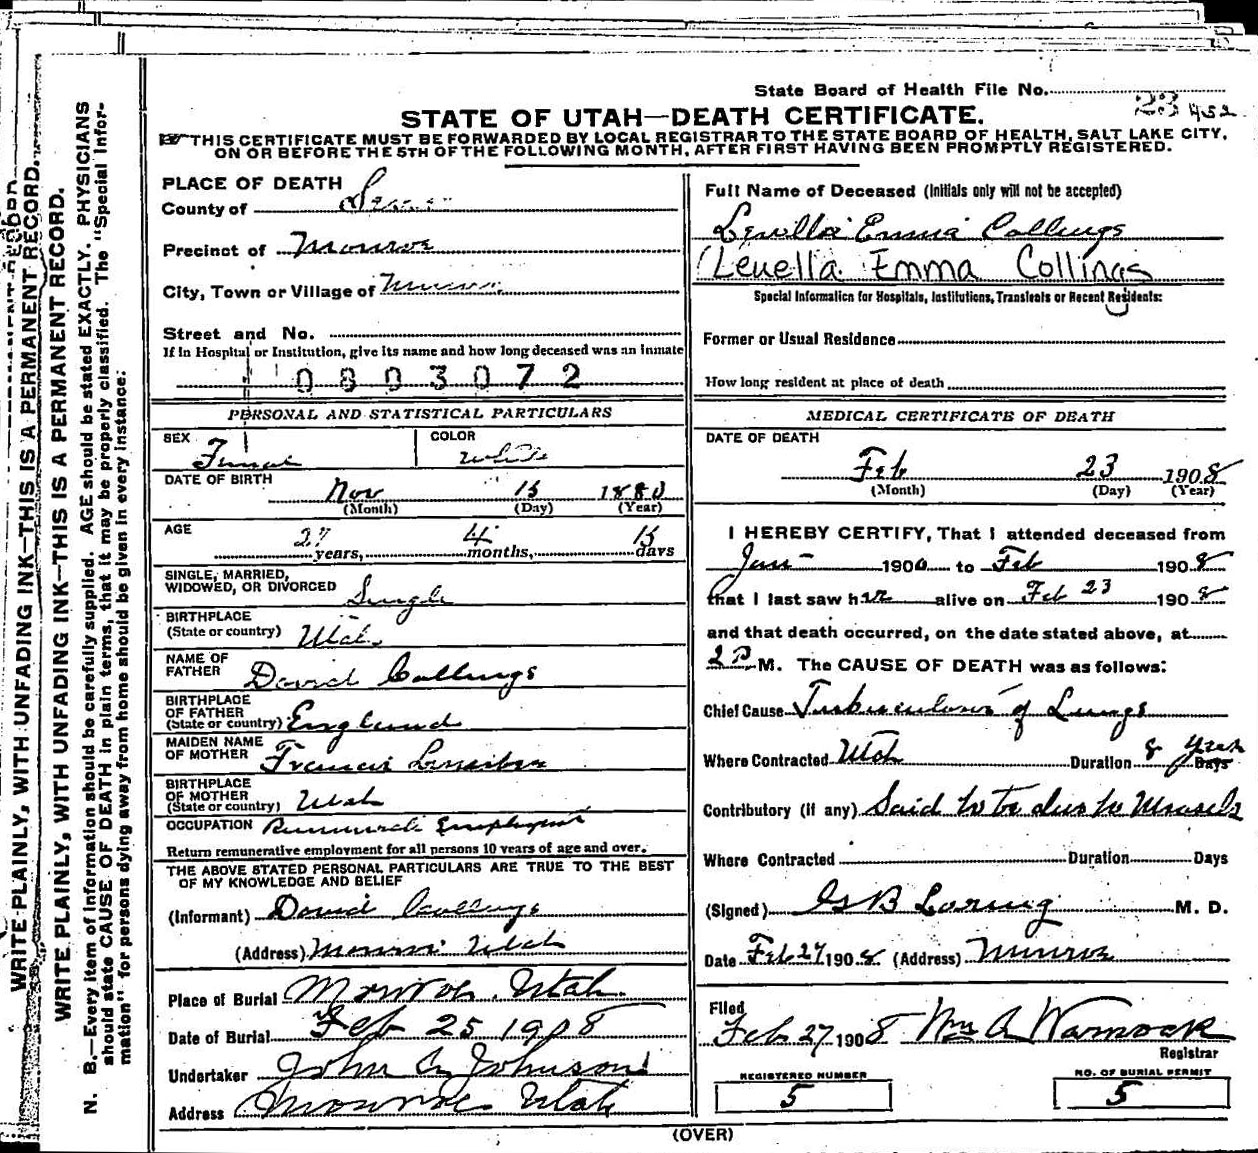 State Board of Health File No.
23 452
STATE OF UTAH—DEATH CERTIFICATE.
THIS CERTIFICATE MUST BE FORWARDED BY LOCAL REGISTRAR TO THE STATE BOARD OF HEALTH, SALT LAKE CITY,
ON OR BEFORE THE 5TH OF THE FOLLOWING MONTH, AFTER FIRST HAVING BEEN PROMPTLY REGISTERED.
WRITE PLAINLY, WITH UNFADING INK—THIS IS A PERMANENT RECORD.
WRITE PLAINLY, WITH UNFADING INK—THIS IS A PERMANENT RECORD.
N. B.—Every item of information should be carefully supplied. AGE should be stated EXACTLY. PHYSICIANS
should state CAUSE OF DEATH in plain terms, that it may be properly classified. The "Special Infor-
mation" for persons dying away from home should be given in every instance.
PLACE OF DEATH
County of Sevier
Precinct of Monroe
City, Town or Village of Monroe
Street and No.
If in Hospital or Institution, give its name and how long deceased was an inmate
0803072
PERSONAL AND STATISTICAL PARTICULARS
SEX Female
COLOR White
DATE OF BIRTH Nov 15 1880
(Month) (Day) (Year)
AGE 27 years, 4 months, 15 days
SINGLE, MARRIED,
WIDOWED, OR DIVORCED Single
BIRTHPLACE
(State or country) Utah
NAME OF
FATHER David Collings
BIRTHPLACE
OF FATHER
(State or country) England
MAIDEN NAME
OF MOTHER Francis
BIRTHPLACE
OF MOTHER
(State or country) Utah
OCCUPATION
Return remunerative employment for all persons 10 years of age and over.
THE ABOVE STATED PERSONAL PARTICULARS ARE TRUE TO THE BEST
OF MY KNOWLEDGE AND BELIEF
(Informant) David Collings
(Address) Monroe Utah
Place of Burial Monroe, Utah.
Date of Burial Feb 25 1908
Undertaker John A Johnson
Address Monroe Utah
Full Name of Deceased (Initials only will not be accepted)
Emma Collings
(Leuella Emma Collings
Special Information for Hospitals, Institutions, Transients or Recent Residents:
Former or Usual Residence
How long resident at place of death
MEDICAL CERTIFICATE OF DEATH
DATE OF DEATH
Feb 23 1908
(Month) (Day) (Year)
I HEREBY CERTIFY, That I attended deceased from
Jan 1900 to Feb 1908
that I last saw her alive on Feb 23 1908
and that death occurred, on the date stated above, at
2 P M. The CAUSE OF DEATH was as follows:
Chief Cause Tuberculosis of Lungs
Where Contracted Utah Duration 8 years Days
Contributory (if any) Said to be due to Measels
Where Contracted Duration Days
(Signed) G B Loring M. D.
Date Feb 27 1908 (Address) Monroe
Filed
Feb 27 1908 Wm A Warnock
Registrar
REGISTERED NUMBER
5
NO. OF BURIAL PERMIT
5
(OVER)